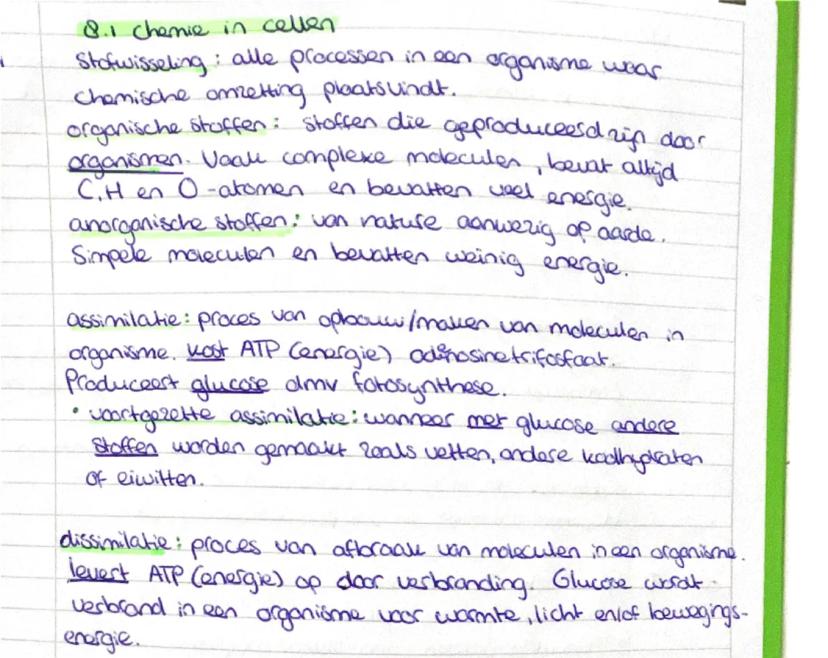 8.1 chemie in cellen
Stofwisseling: alle processen in een organisme waar
chemische omzetting plaatsvindt.
organische stoffen: stoffen die geproduceesd zijn door
organismen. Vaak complexe moleculen, bevat altijd
C,H en O-atomen en bevatten veel energie.
anorganische stoffen: van nature aanwezig op aarde.
Simpele moleculen en bevatten weinig energie.
assimilatie: proces van opbouw/maken van moleculen in
organisme. kost ATP (energie) adinosinetrifosfaat.
Produceert glucose dmv fotosynthese.
• voortgezette assimilatie: wanneer met glucose andere
stoffen worden gemaakt zoals vetten, andere koolhydraten
of eiwitten.
dissimilatie: proces van afbraak van moleculen in een organisme.
levert ATP (energie) op door verbranding. Glucose wordt
verbrand in een organisme voor warmte, licht en/of bewegings-
energie.